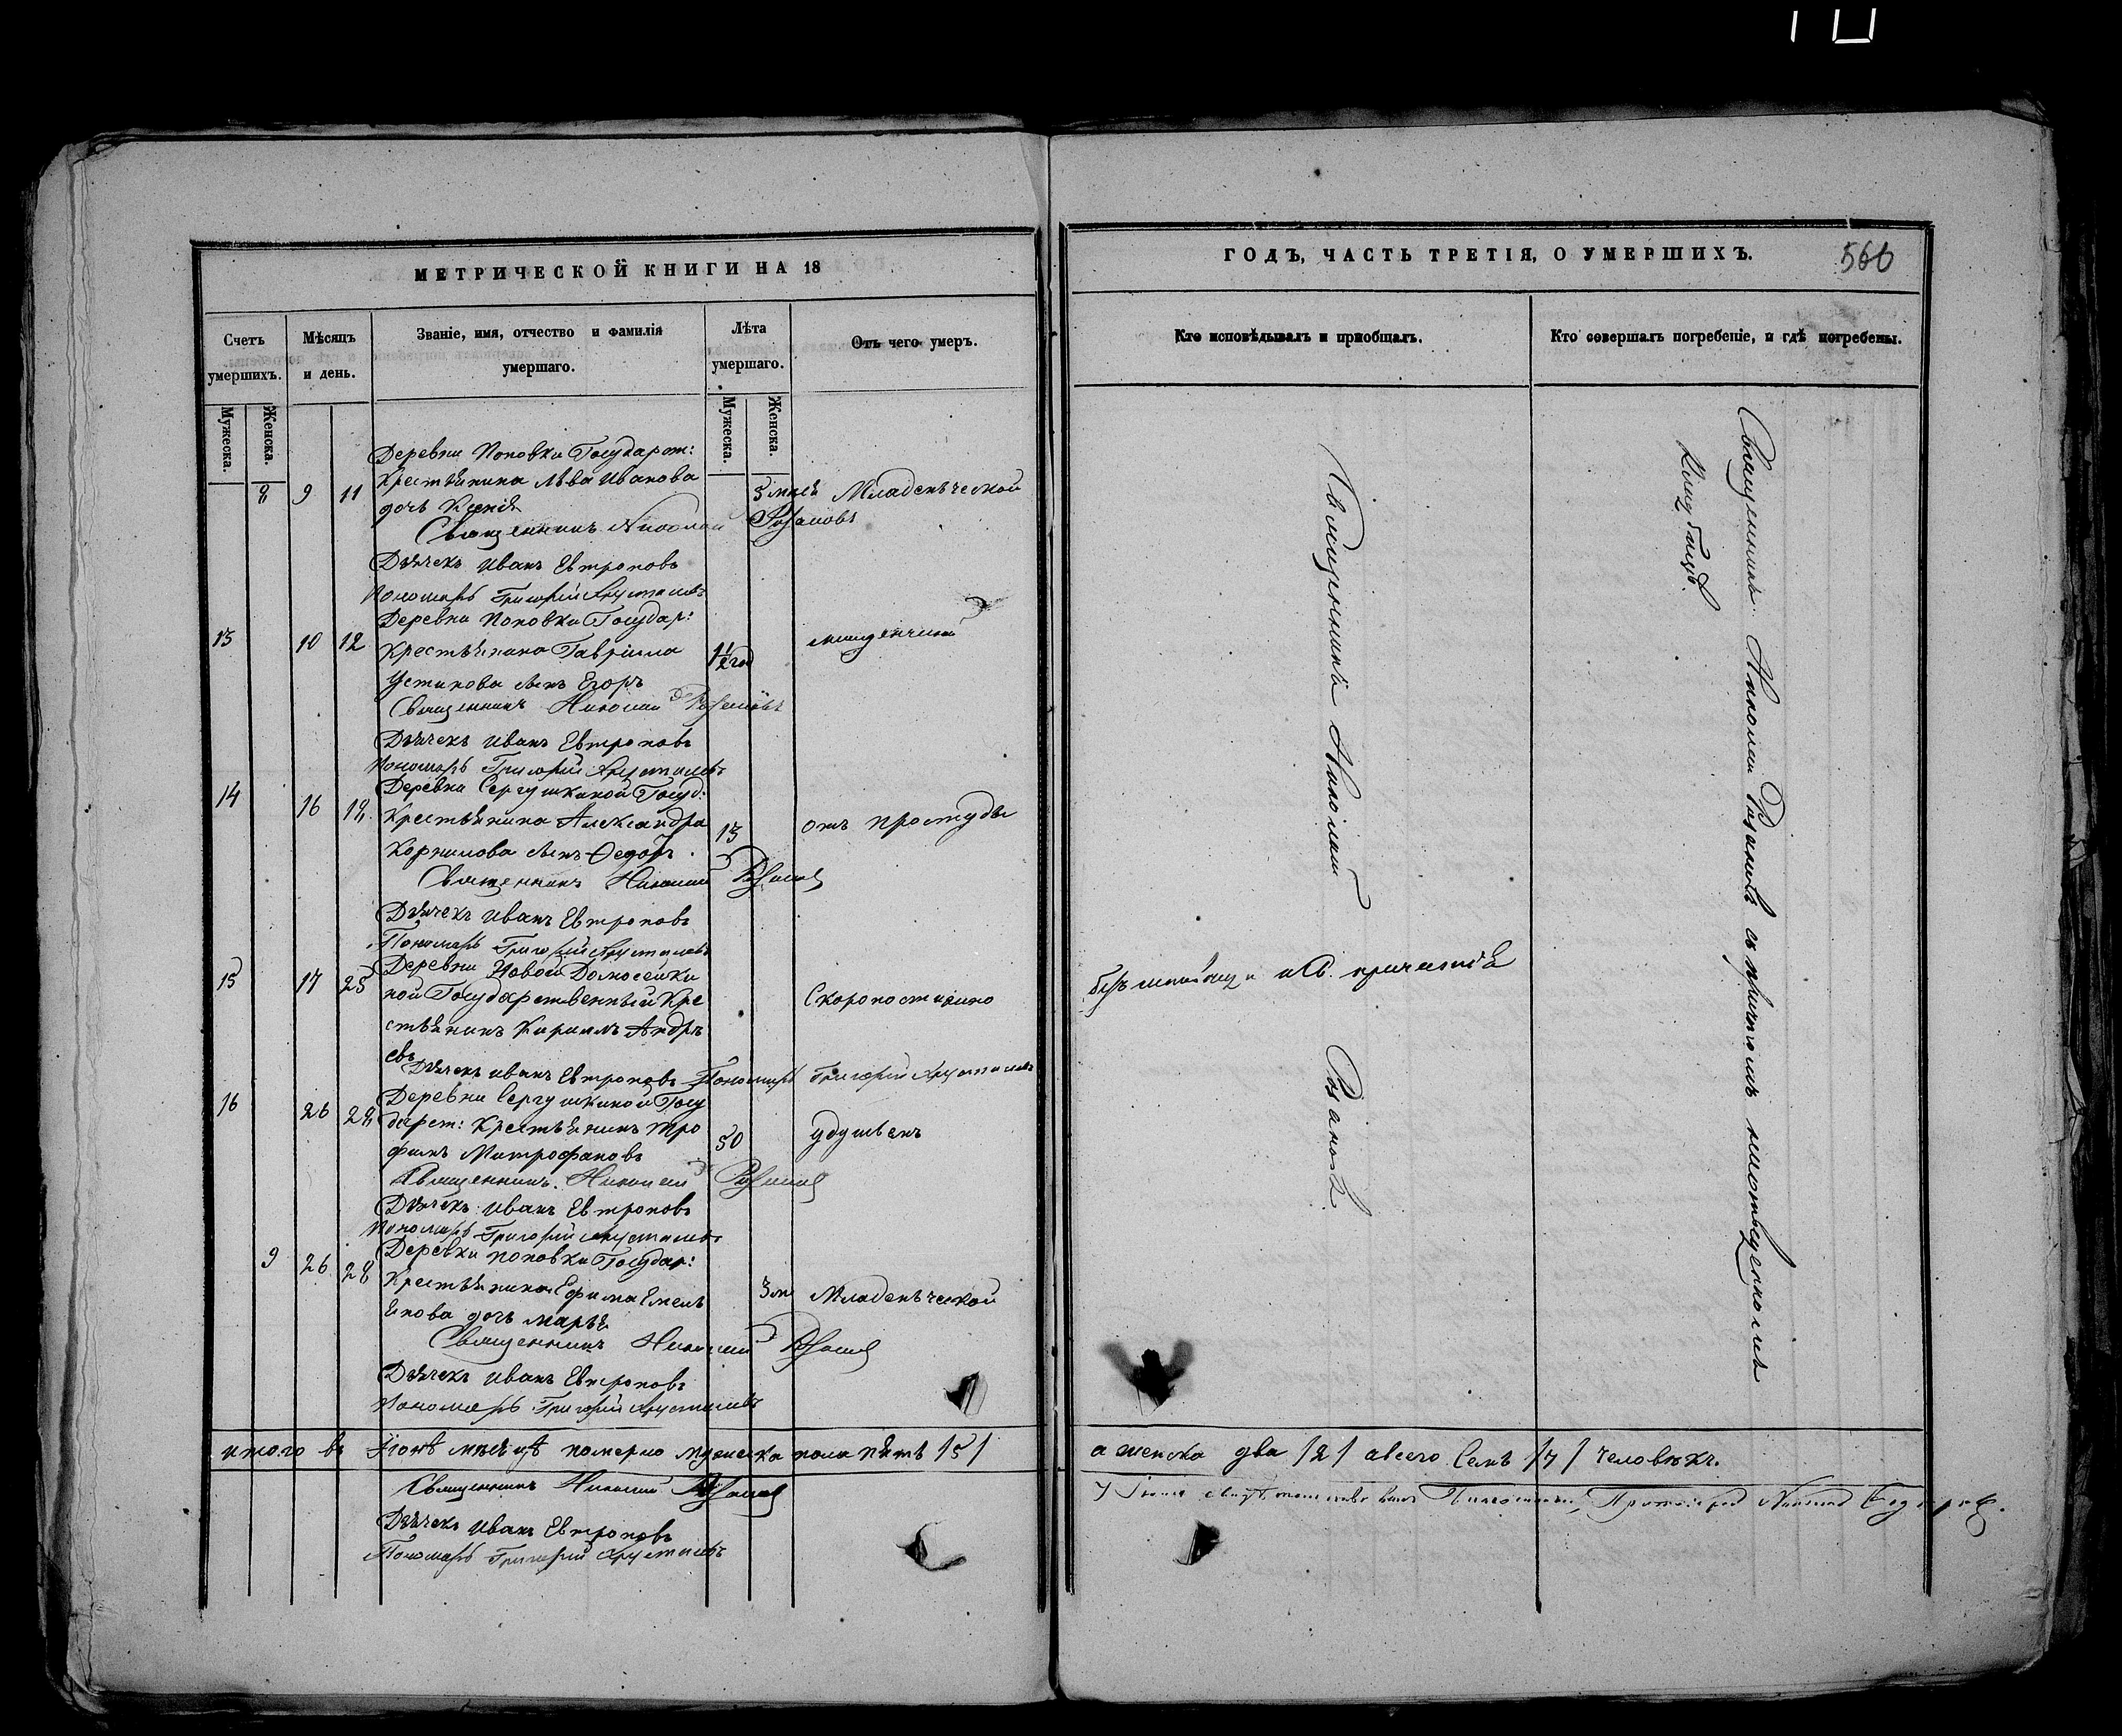 МЕТРИЧЕСКОЙ КНИГИ НА 18
Счетъ умершихъ.
Мѣсяцъ и день.
Званіе, имя, отчество и фамилія умершаго.
Лѣта умершаго.
Отъ чего умеръ.
Мужеска.
Женска.
Мужеска.
Женска.
Деревни Поповки Государст:
8 9 11 Крестьянина Льва Иванова 5 мѣся Младенческой
дочь Ксенія
Священникъ Николай Розановъ
Дьячекъ Иванъ Евтроповъ
Пономарь Григорій Хрусталевъ
Деревни Поповки Государ:
13 10 12 Крестьянина Гавріила 1½ год младенческой
Устинова сынъ Егоръ
Священникъ Николай Розановъ
Дьячекъ Иванъ Евтроповъ
Пономарь Григорій Хрусталевъ
Деревни Сергушкиной Госуд:
14 16 18 Крестьянина Александра 13 отъ простуды
Корнилова сынъ Ѳедоръ
Священникъ Николай Розановъ
Дьячекъ Иванъ Евтроповъ
Пономарь Григорій Хрусталевъ
Деревни Новой Домосейки
15 17 25 ной Государственный Кре Скоропостижно
стьянинъ Кирилъ Андре
евъ
Дьячекъ Иванъ Евтроповъ Пономарь Григорій Хрусталевъ
Деревни Сергушкиной Госу
16 26 28 дарст: Крестьянинъ Тро 50 удушьемъ
фимъ Митрофановъ
Священникъ Николай Розановъ
Дьячекъ Иванъ Евтроповъ
Пономарь Григорій Хрусталевъ
Деревни Поповки Государ:
9 26 28 Крестьянина Ефима Емель 3 м Младенческой
янова дочь Марья
Священникъ Николай Розановъ
Дьячекъ Иванъ Евтроповъ
Пономарь Григорій Хрусталевъ
итого въ Іюнѣ мѣсяцѣ померло мужеска пола пять /5/
Священникъ Николай Розановъ
Дьячекъ Иванъ Евтроповъ
Пономарь Григорій Хрусталевъ
ГОДЪ, ЧАСТЬ ТРЕТІЯ, О УМЕРШИХЪ.
566
Кто исповѣдывалъ и пріобщалъ.
Кто совершалъ погребеніе, и гдѣ погребены.
Священникъ Николай Розановъ
безъ исповѣди и Св. причастія
Священникъ Николай Розановъ съ причтомъ на отведенномъ
Кладбищѣ
а женска два /2/ а всего Семь /7/ человѣкъ.
Протоіерей